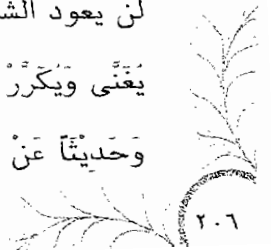 لن يعود الش
يُغَنَّى وَيُكَرَّرْ
وَحَدِيْثَاً عَنْ
٢٠٦